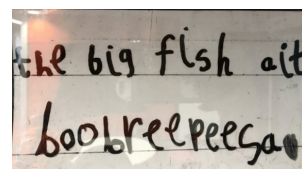 the big fish ait
boobreepeesa